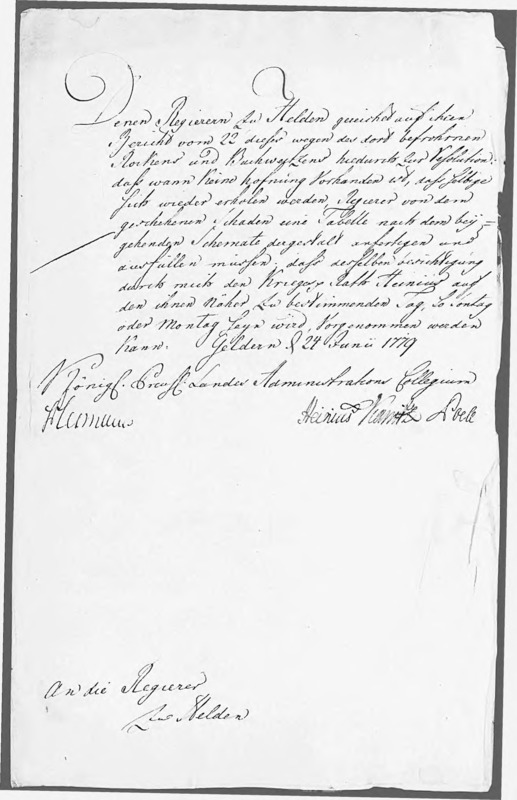 Denen Regierern zu Helden gereichet auf ihren
Bericht vom 22 dieses wegen des dort befrohrnen
Rockens und Buchweytzens hiedurch zur Resolution:
daß wann keine Hofnung vorhanden ist, daß selbige
sich wieder erholen werden, Regierer von dem
geschehenen Schaden eine Tabelle nach dem bey=
gehenden Schemate dergestalt anfertigen und
ausfüllen müssen, daß desselben besichtigung
durch mich den Krieges Rath Heinius auf
den ihnen Näher zu bestimmenden Tag, so Sontag
oder Montag seyn wird, Vorgenommen werden
kann. Geldern d 24 Junii 1779
Königl. Preuss. Landes Administrations Collegium
Heinius
An die Regierer
zu Helden